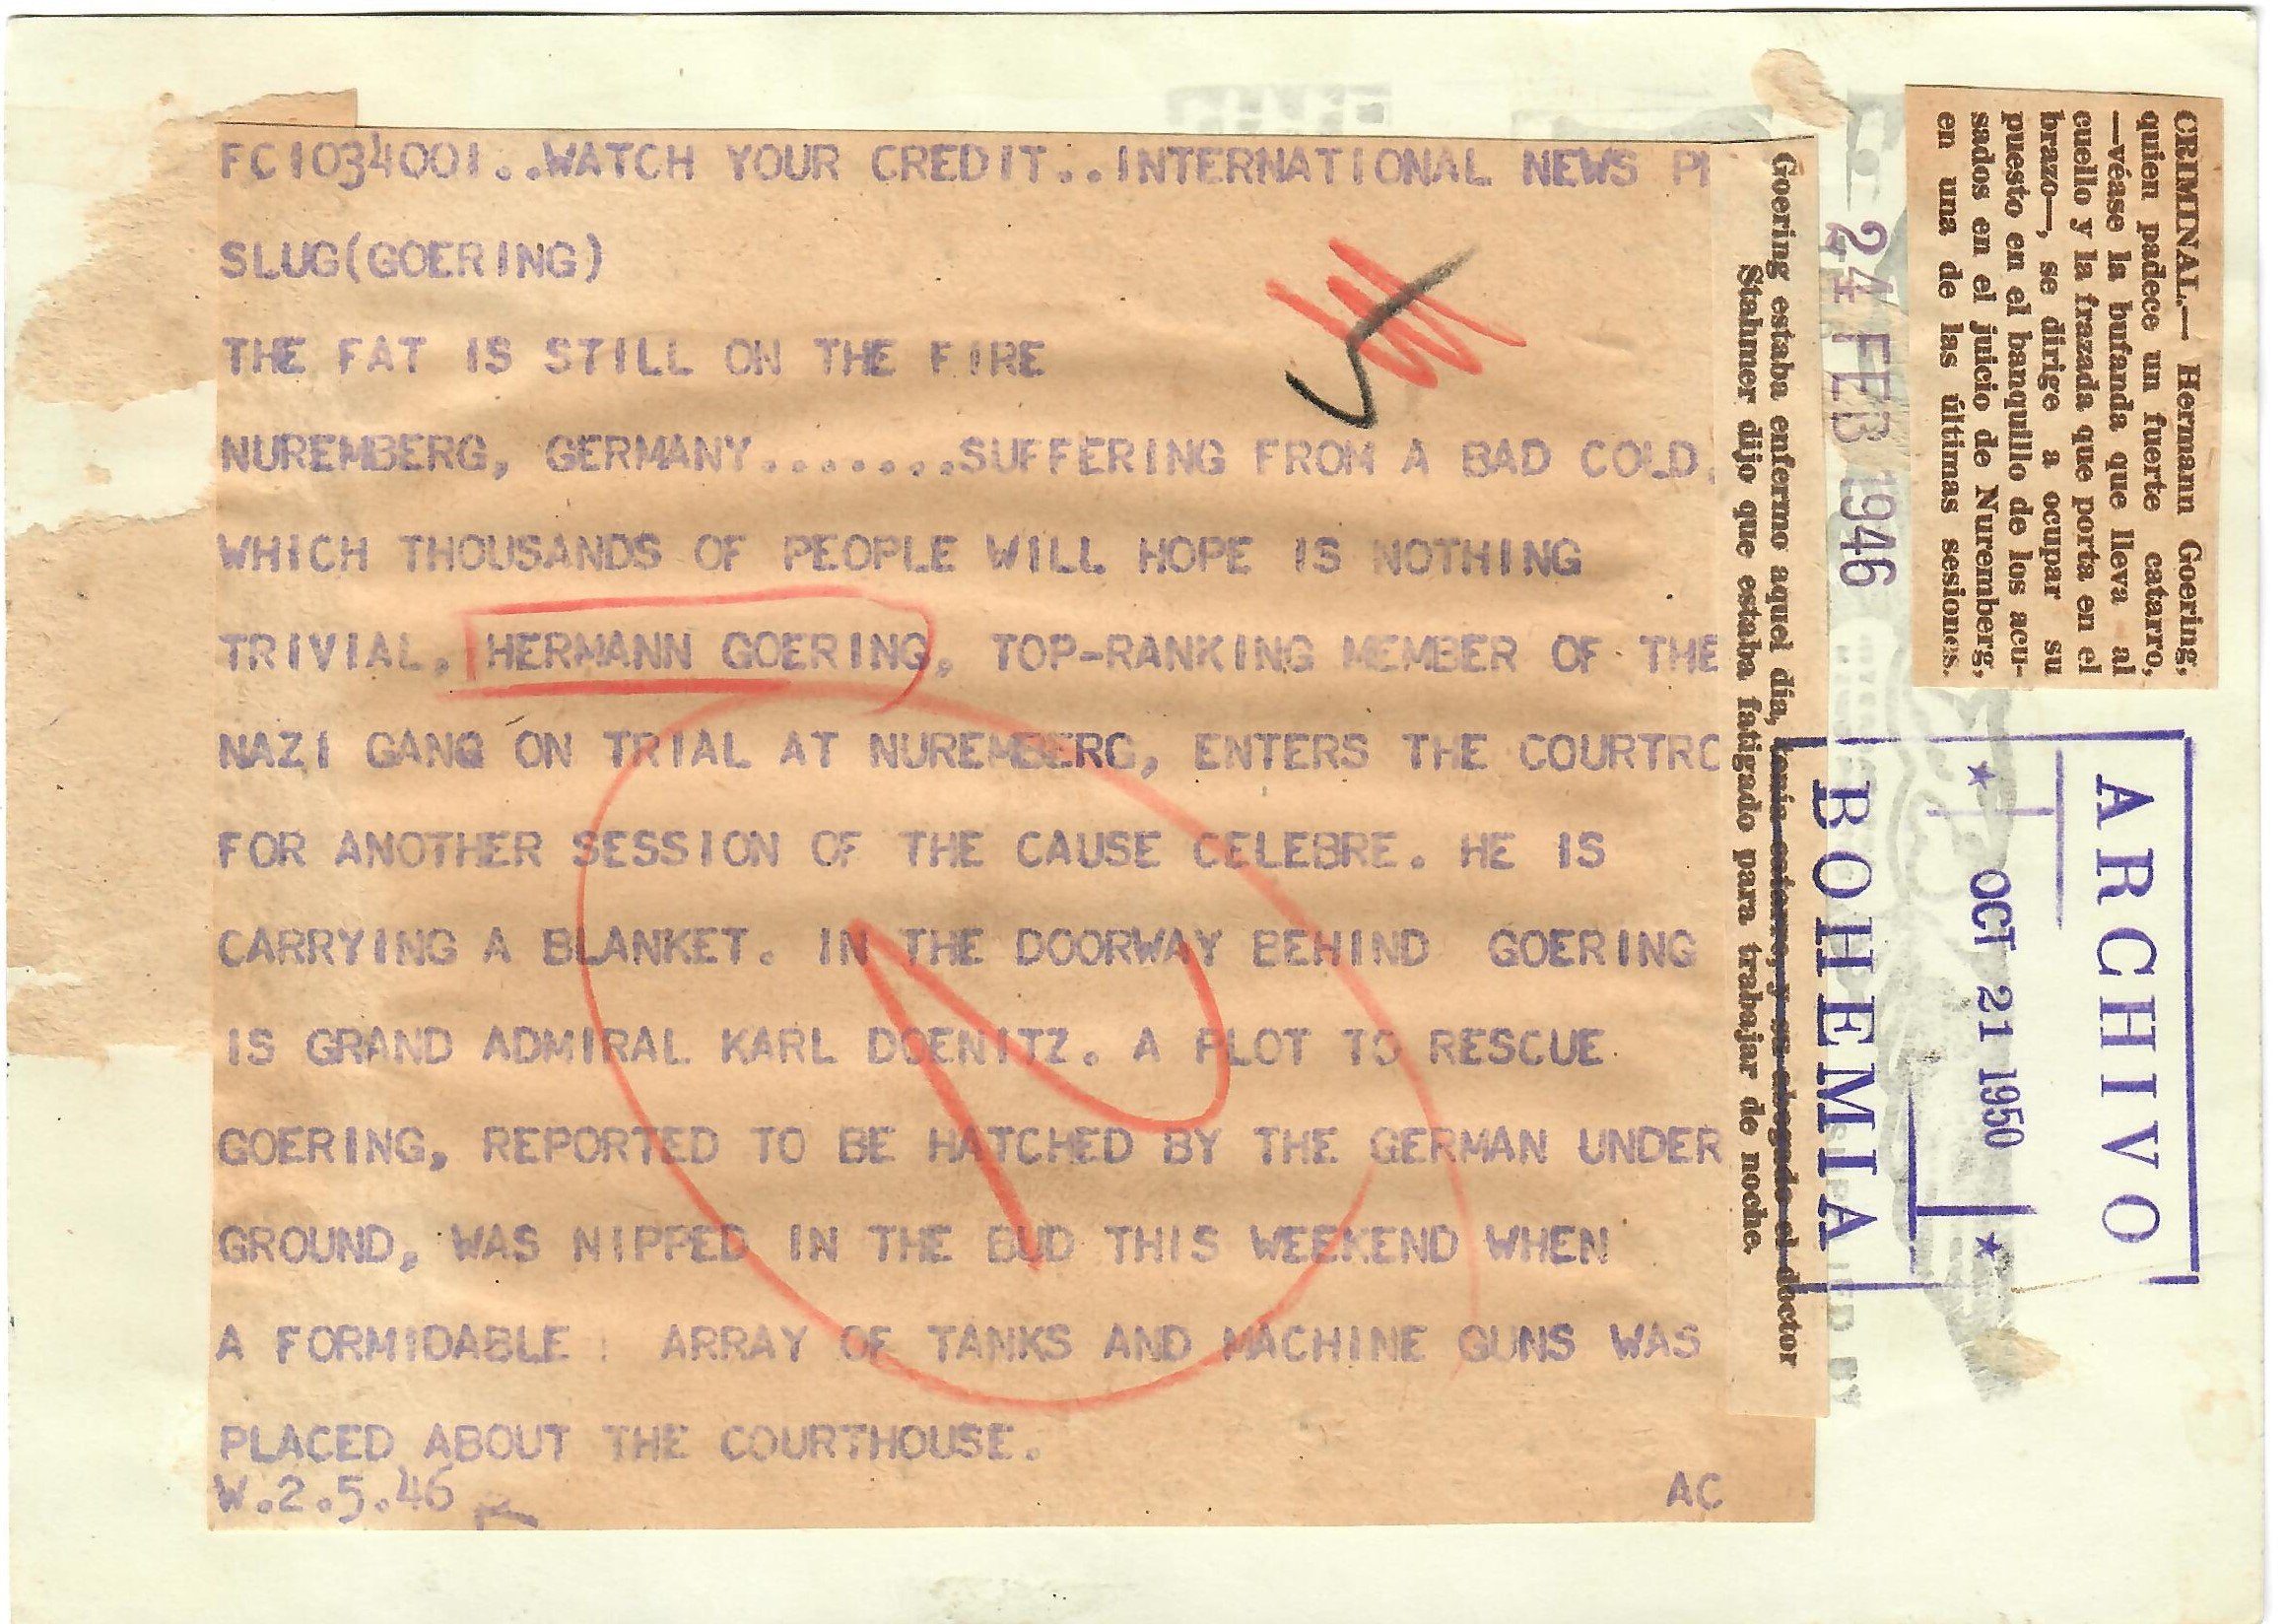 FC1034001..WATCH YOUR CREDIT..INTERNATIONAL NEWS
SLUG(GOERING)
THE FAT IS STILL ON THE FIRE
NUREMBERG, GERMANY.......SUFFERING FROM A BAD COLD,
WHICH THOUSANDS OF PEOPLE WILL HOPE IS NOTHING
TRIVIAL, HERMANN GOERING, TOP-RANKING MEMBER OF THE
NAZI GANG ON TRIAL AT NUREMBERG, ENTERS THE COURTRO
FOR ANOTHER SESSION OF THE CAUSE CELEBRE. HE IS
CARRYING A BLANKET. IN THE DOORWAY BEHIND GOERING
IS GRAND ADMIRAL KARL DOENITZ. A PLOT TO RESCUE
GOERING, REPORTED TO BE HATCHED BY THE GERMAN UNDER
GROUND, WAS NIPPED IN THE BUD THIS WEEKEND WHEN
A FORMIDABLE ARRAY OF TANKS AND MACHINE GUNS WAS
PLACED ABOUT THE COURTHOUSE.
W.2.5.46 AC
Goering estaba enfermo aquel día, tenía catarro, y su abogado el doctor
Stahmer dijo que estaba fatigado para trabajar de noche.
24 FEB 1946
CRIMINAL.— Hermann Goering,
quien padece un fuerte catarro,
—véase la bufanda que lleva al
cuello y la frazada que porta en el
brazo—, se dirige a ocupar su
puesto en el banquillo de los acu-
sados en el juicio de Nuremberg,
en una de las últimas sesiones.
ARCHIVO
OCT 21 1950
BOHEMIA